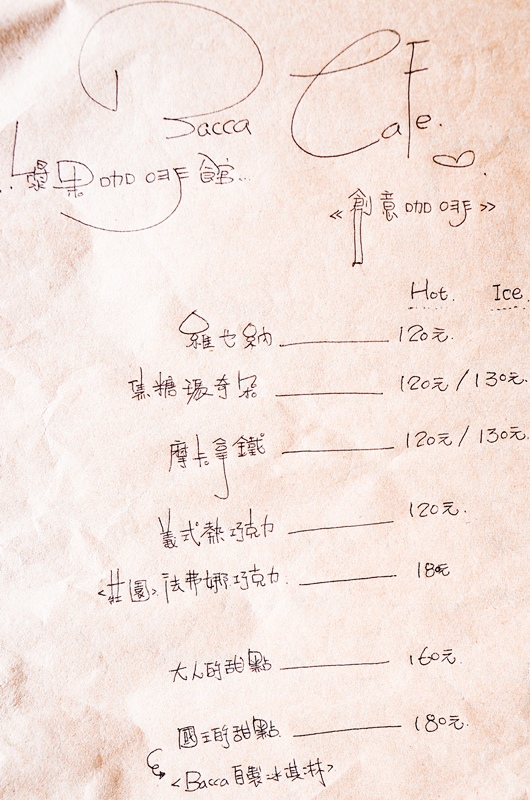 Bacca Cafe.
爆果咖啡館...
《創意咖啡》
Hot. Ice
維也納 120元.
焦糖瑪奇朵 120元 / 130元.
摩卡拿鐵 120元 / 130元.
義式熱巧克力 120元.
<莊園>法弗娜巧克力. 180元
大人的甜點 160元.
國王的甜點 180元.
<Bacca自製冰淇淋>